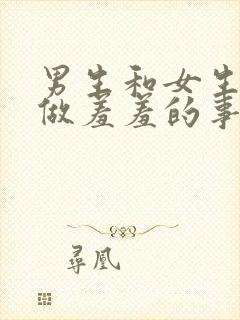 男生和女生
做羞羞的事
尋凰